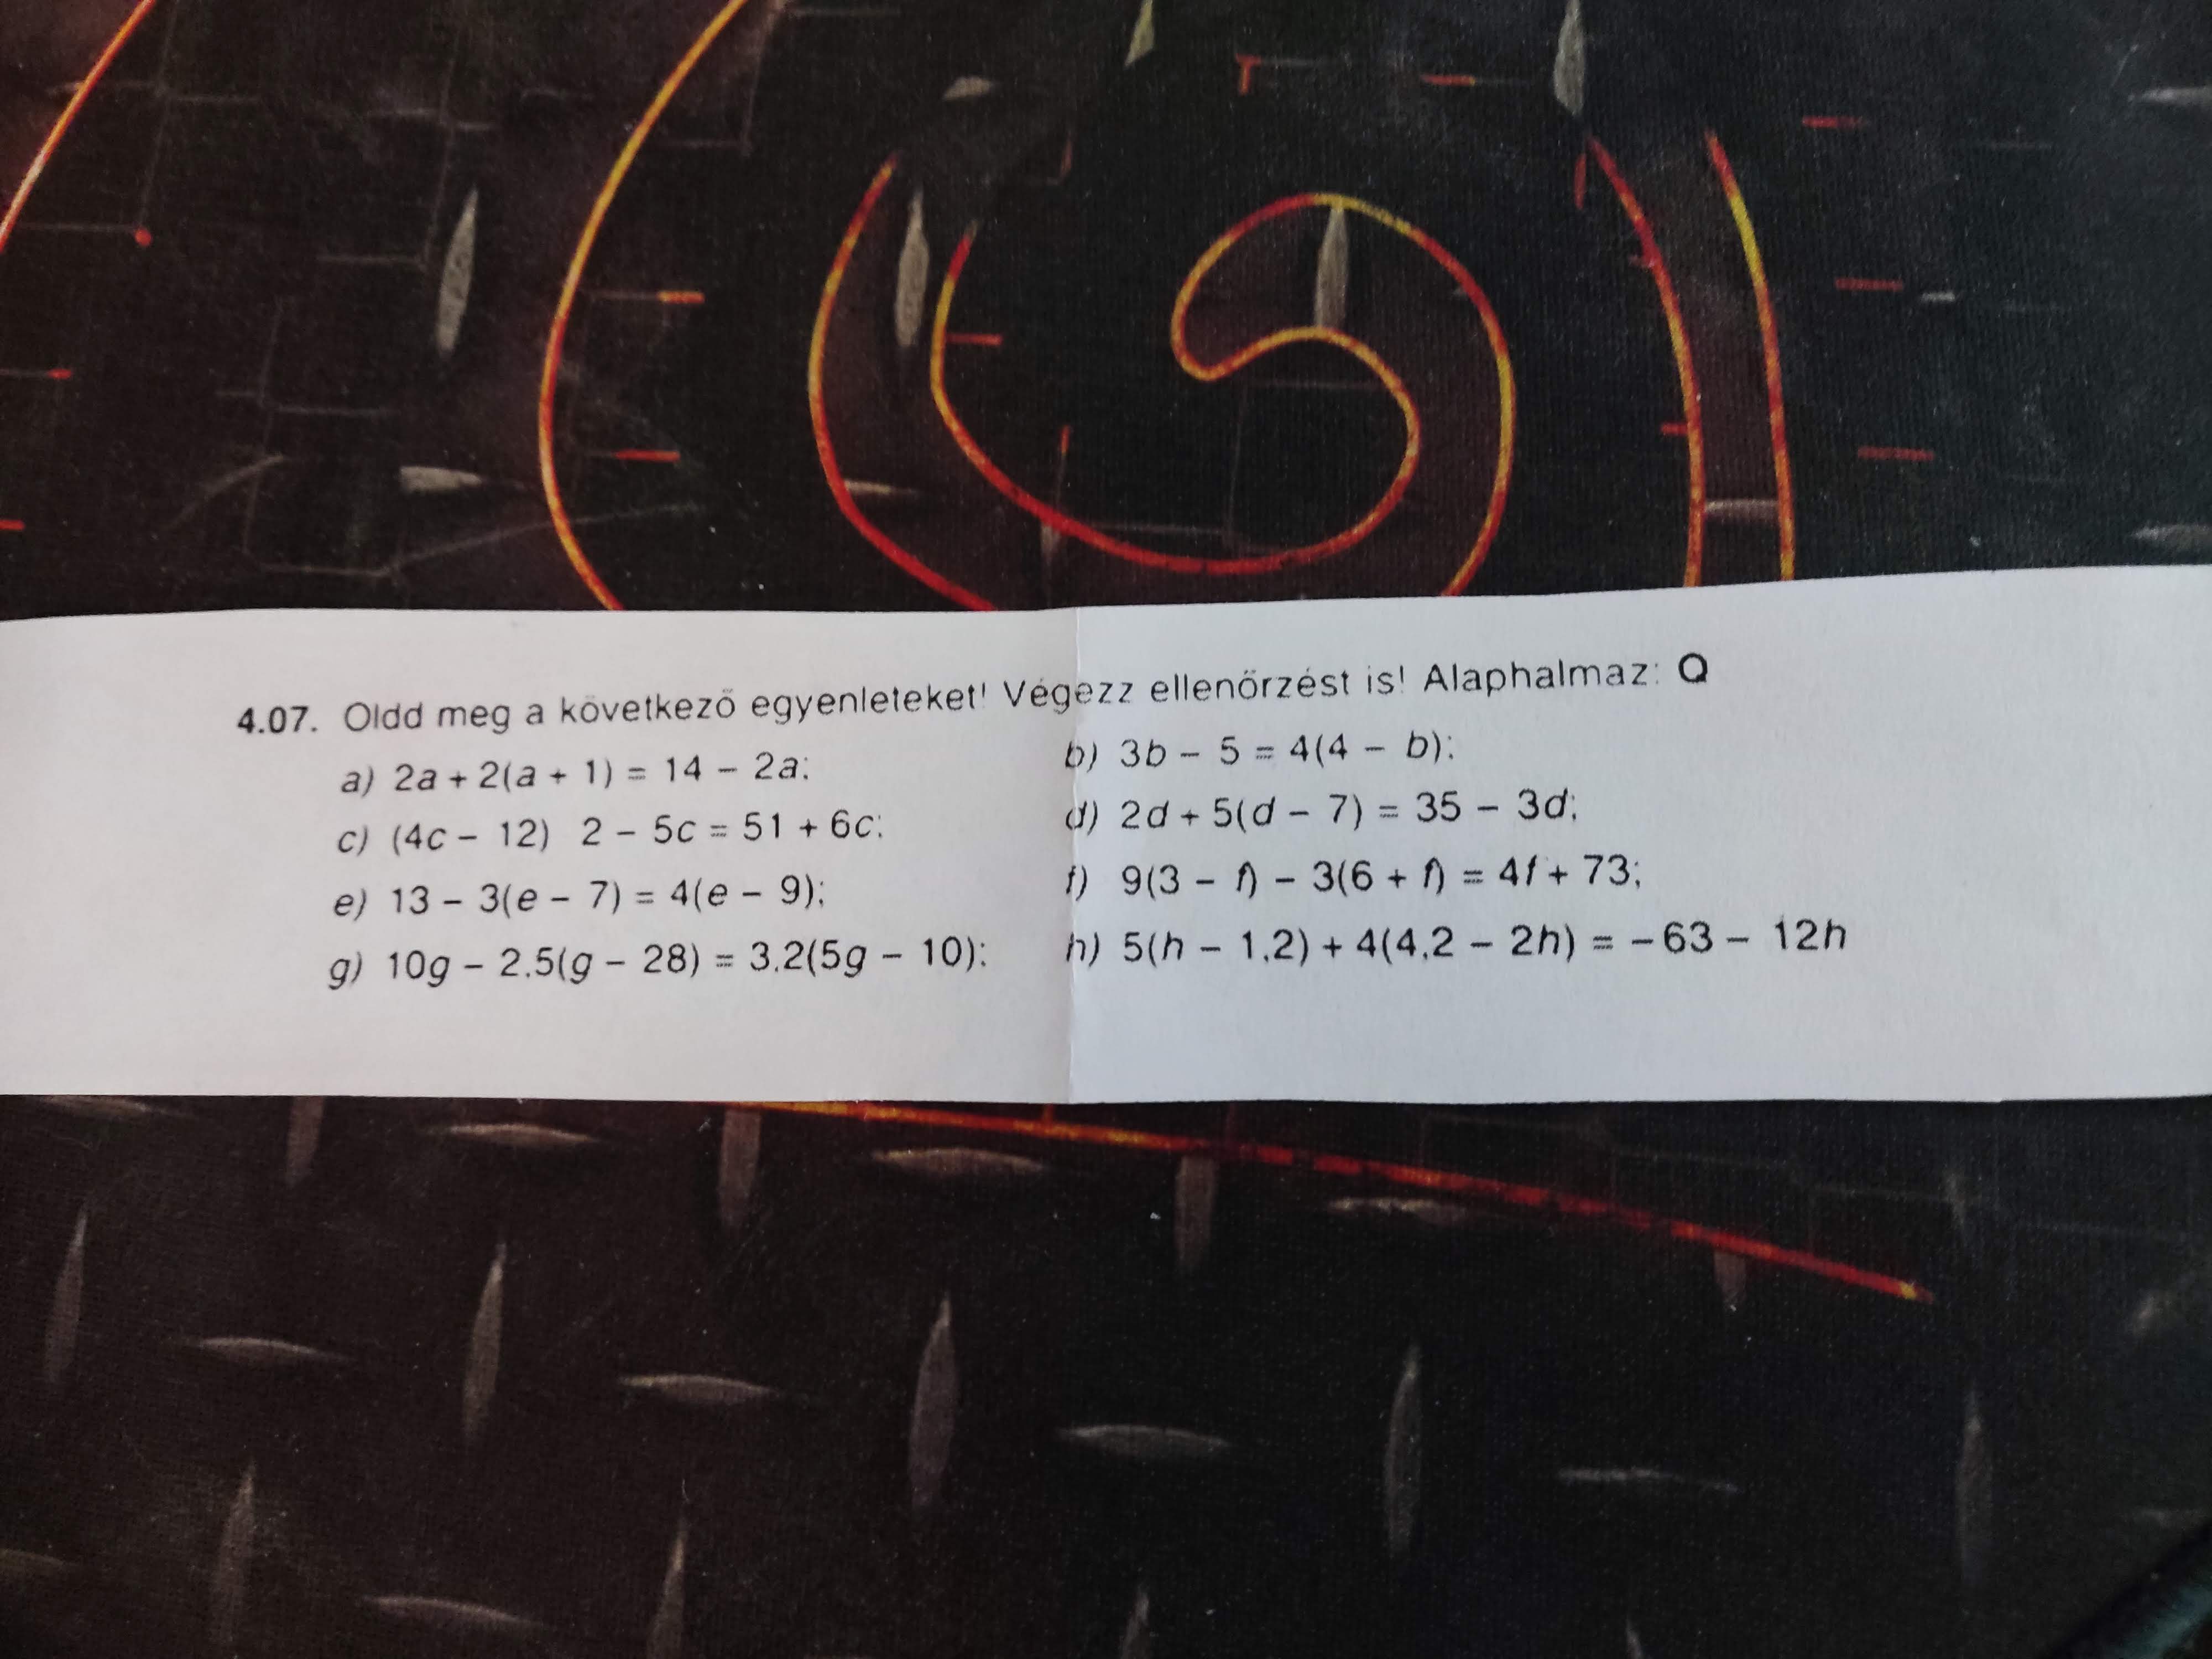 4.07. Oldd meg a következő egyenleteket! Végezz ellenőrzést is! Alaphalmaz: Q
a) 2a + 2(a + 1) = 14 – 2a; b) 3b – 5 = 4(4 – b);
c) (4c – 12) 2 – 5c = 51 + 6c; d) 2d + 5(d – 7) = 35 – 3d;
e) 13 – 3(e – 7) = 4(e – 9); f) 9(3 – f) – 3(6 + f) = 4f + 73;
g) 10g – 2,5(g – 28) = 3,2(5g – 10); h) 5(h – 1,2) + 4(4,2 – 2h) = –63 – 12h